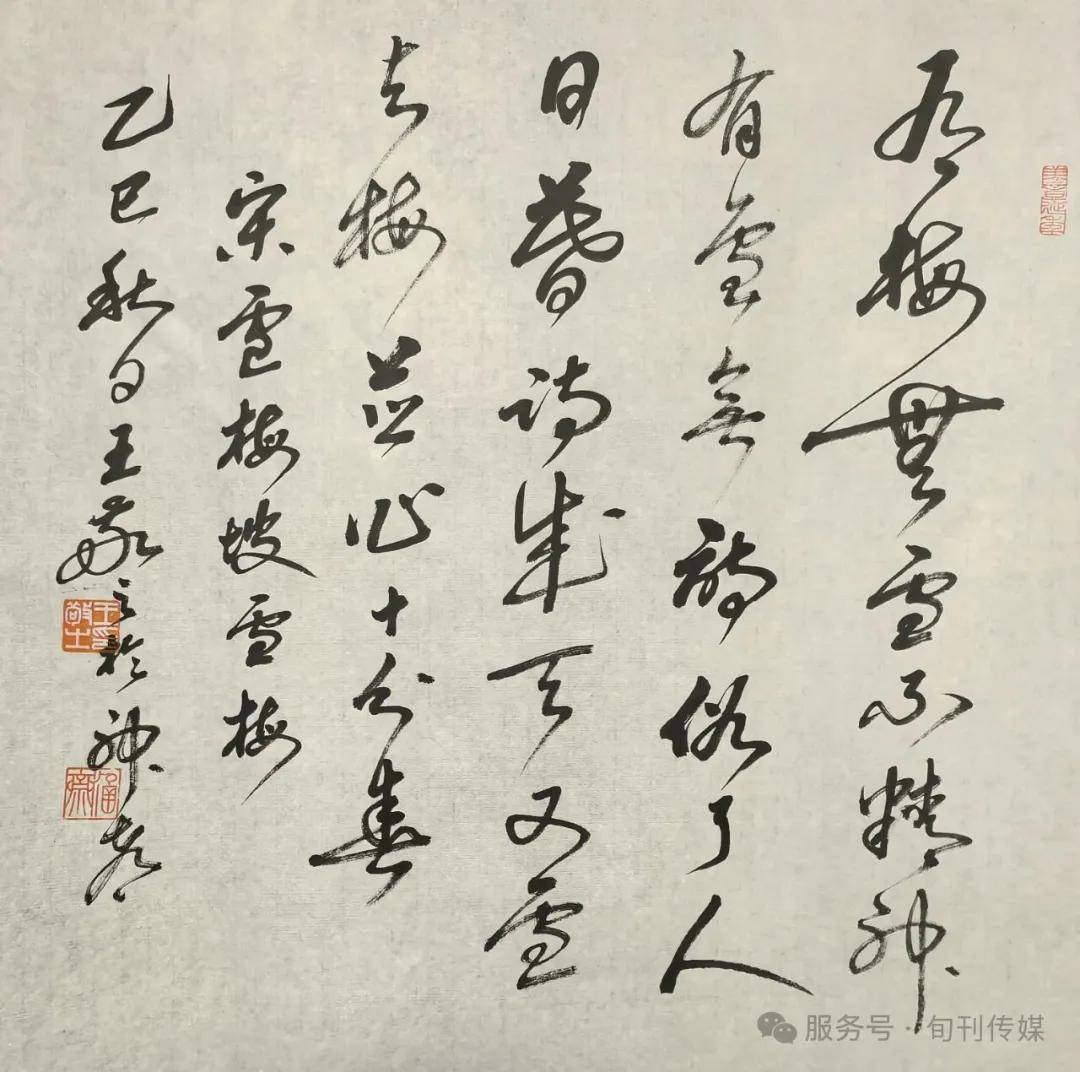 有梅無雪不精神
有雪無詩俗了人
日暮詩成天又雪
与梅並作十分春
宋盧梅坡雪梅
乙巳秋日王敬於神都
服务号 · 旬刊传媒